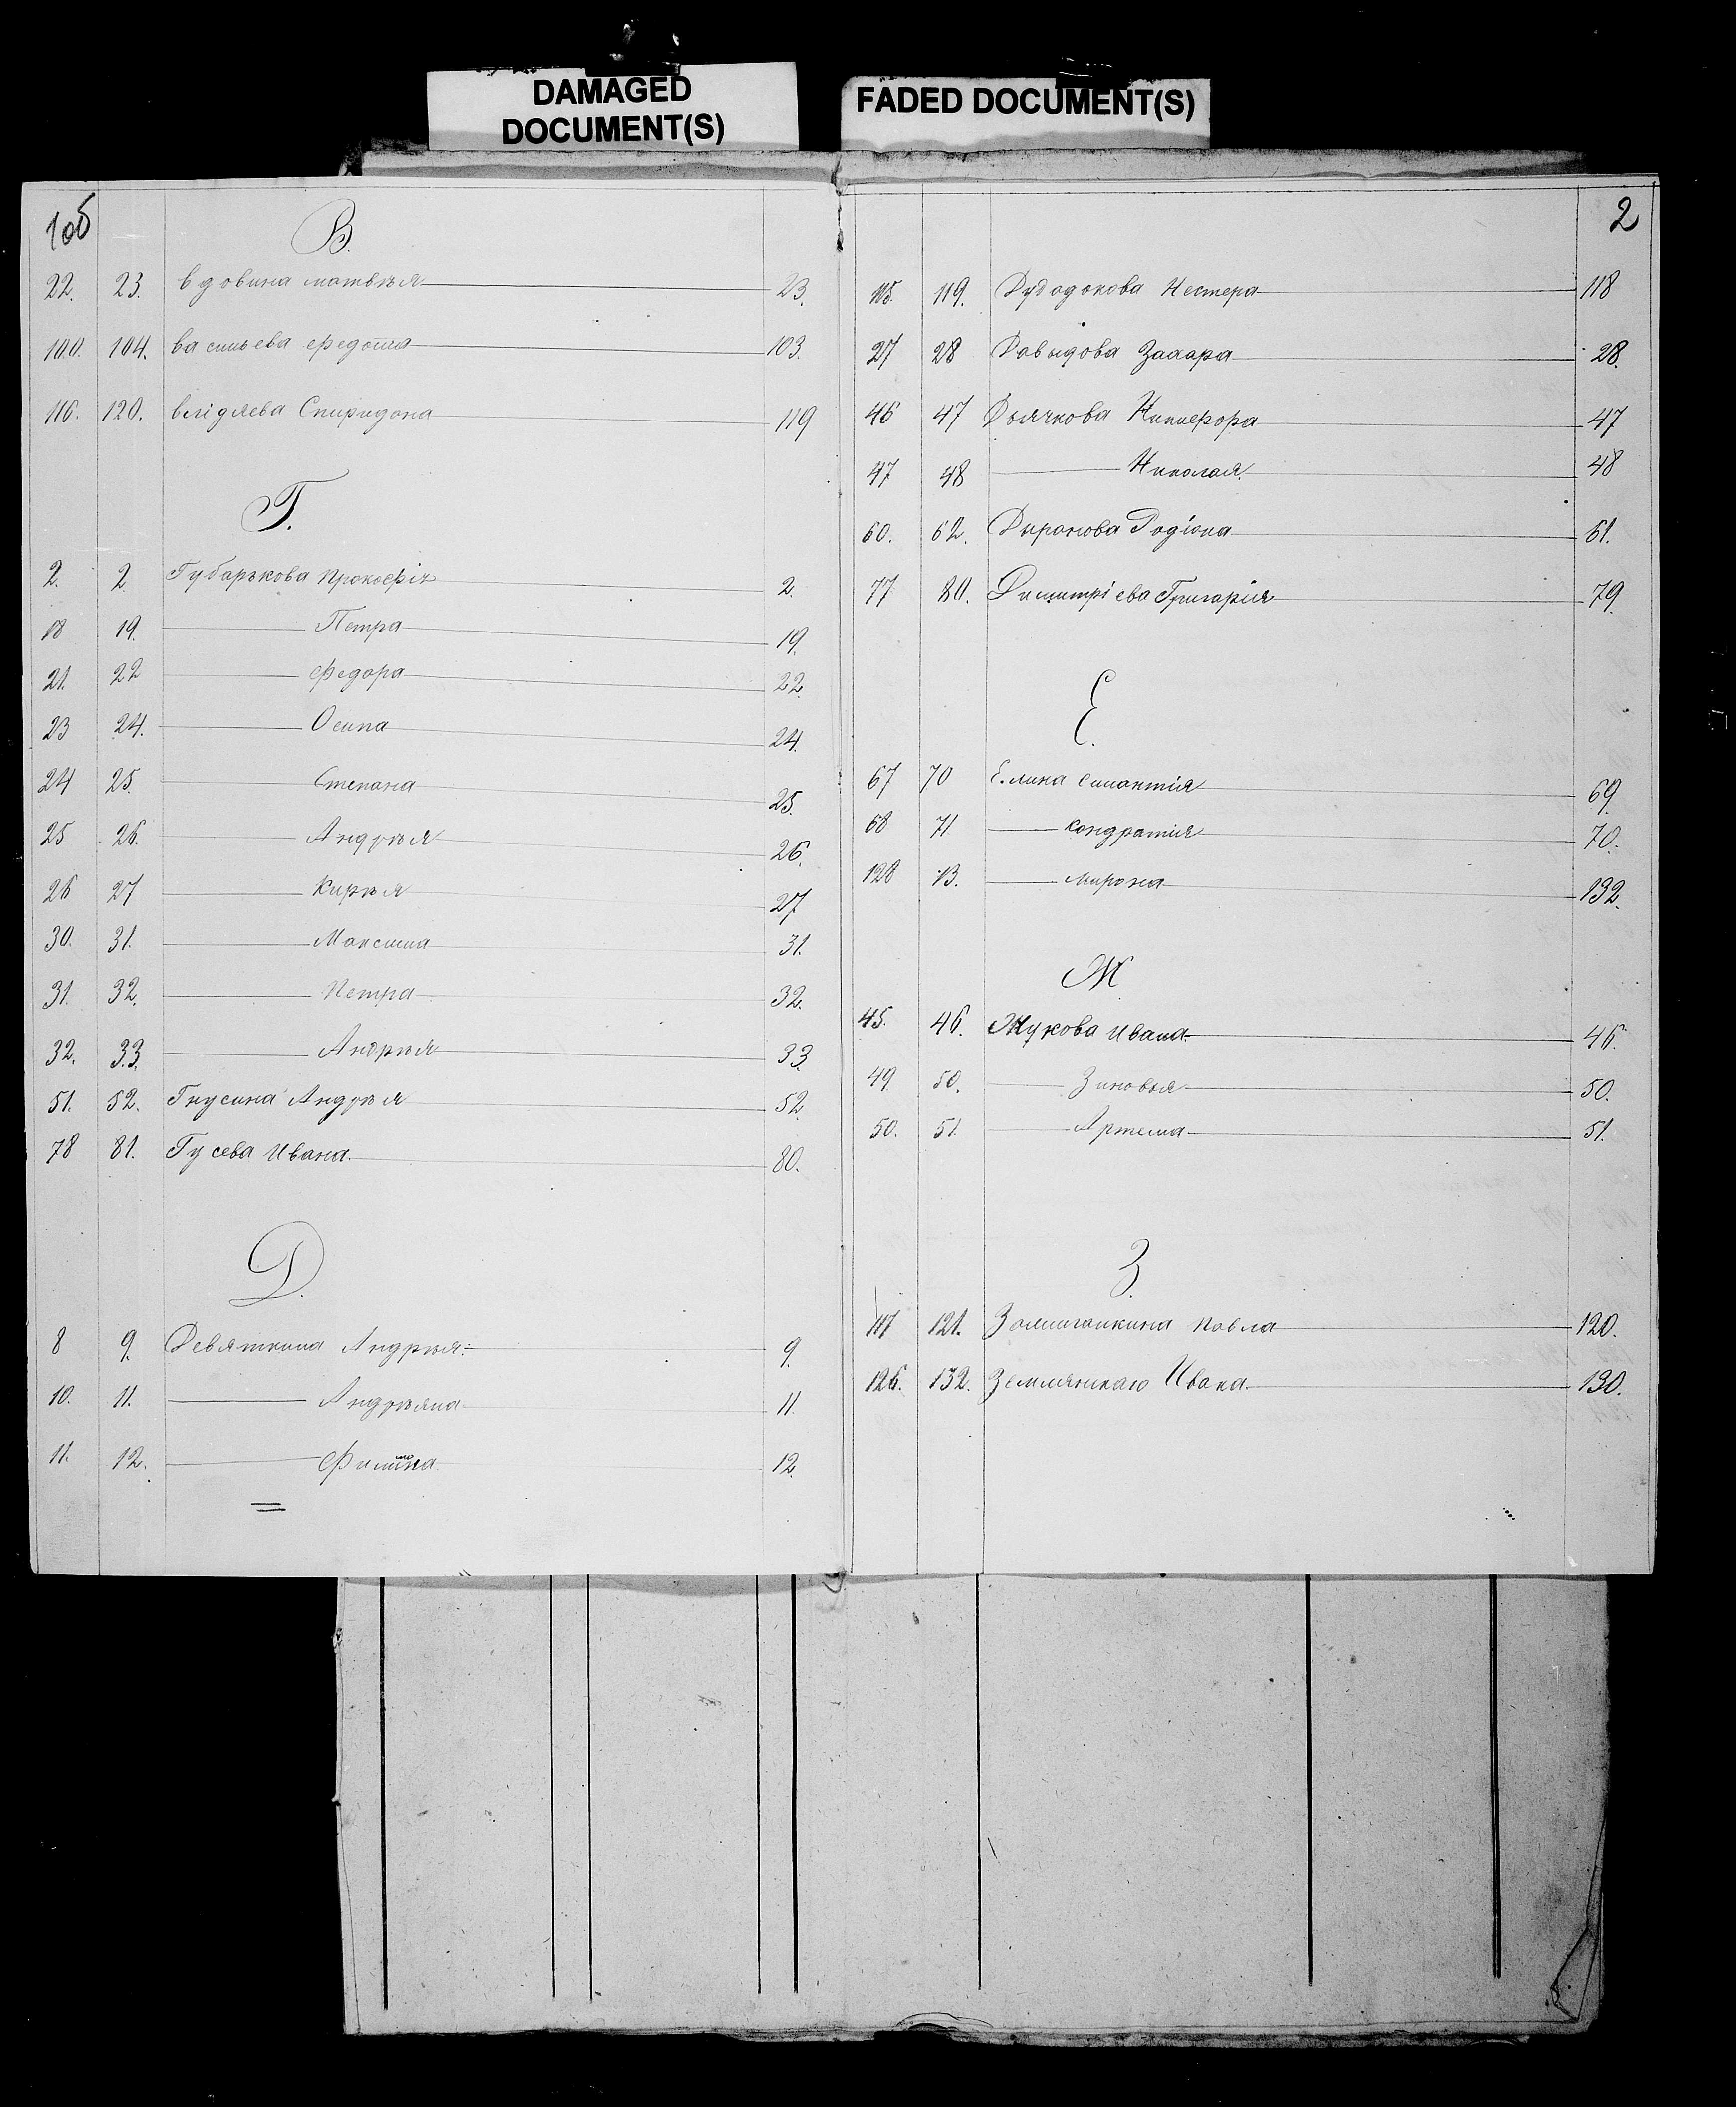 DAMAGED
DOCUMENT(S)
FADED DOCUMENT(S)
1об
В.
22. 23. вдовина матвѣя 23.
100. 104. васильева федота 103.
116. 120. Спиридона 119
Г.
2. 2. Губарькова Прокофія 2.
18 19. Петра 19.
21. 22 Федора 22.
23 24. Осипа 24.
24 25. Степана 25.
25 26. Андрѣя 26.
26 27 Кирѣя 27
30. 31. Максима 31.
31. 32. Петра 32.
32. 33. Андрѣя 33.
51. 52. Гнусина Андрѣя 52.
78 81. Гусева Ивана 80.
Д.
8 9. Девяткина Андрѣя 9.
10. 11. Андрѣяна 11.
11. 12. 12.
2
115. 119. Нестера 118
27 28 Давыдова Захара 28.
46 47 Дьячкова Никифора 47
47 48 Николая 48
60. 62. Родіона 61.
77 80. Димитріева Григорія 79.
Е.
67 70 Елина 69.
68 71 кондратія 70.
128 13. мирона 132.
Ж
45. 46. Жукова Ивана 46.
49 50. Зиновья 50.
50. 51. Артема 51.
З.
117 121. павла 120.
126. 132. Землянскаго Ивана 130.